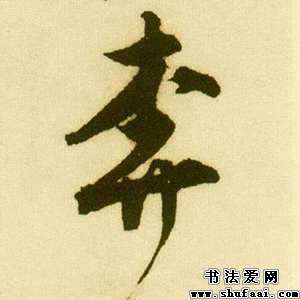 奔
书法爱网
www.shufaai.com